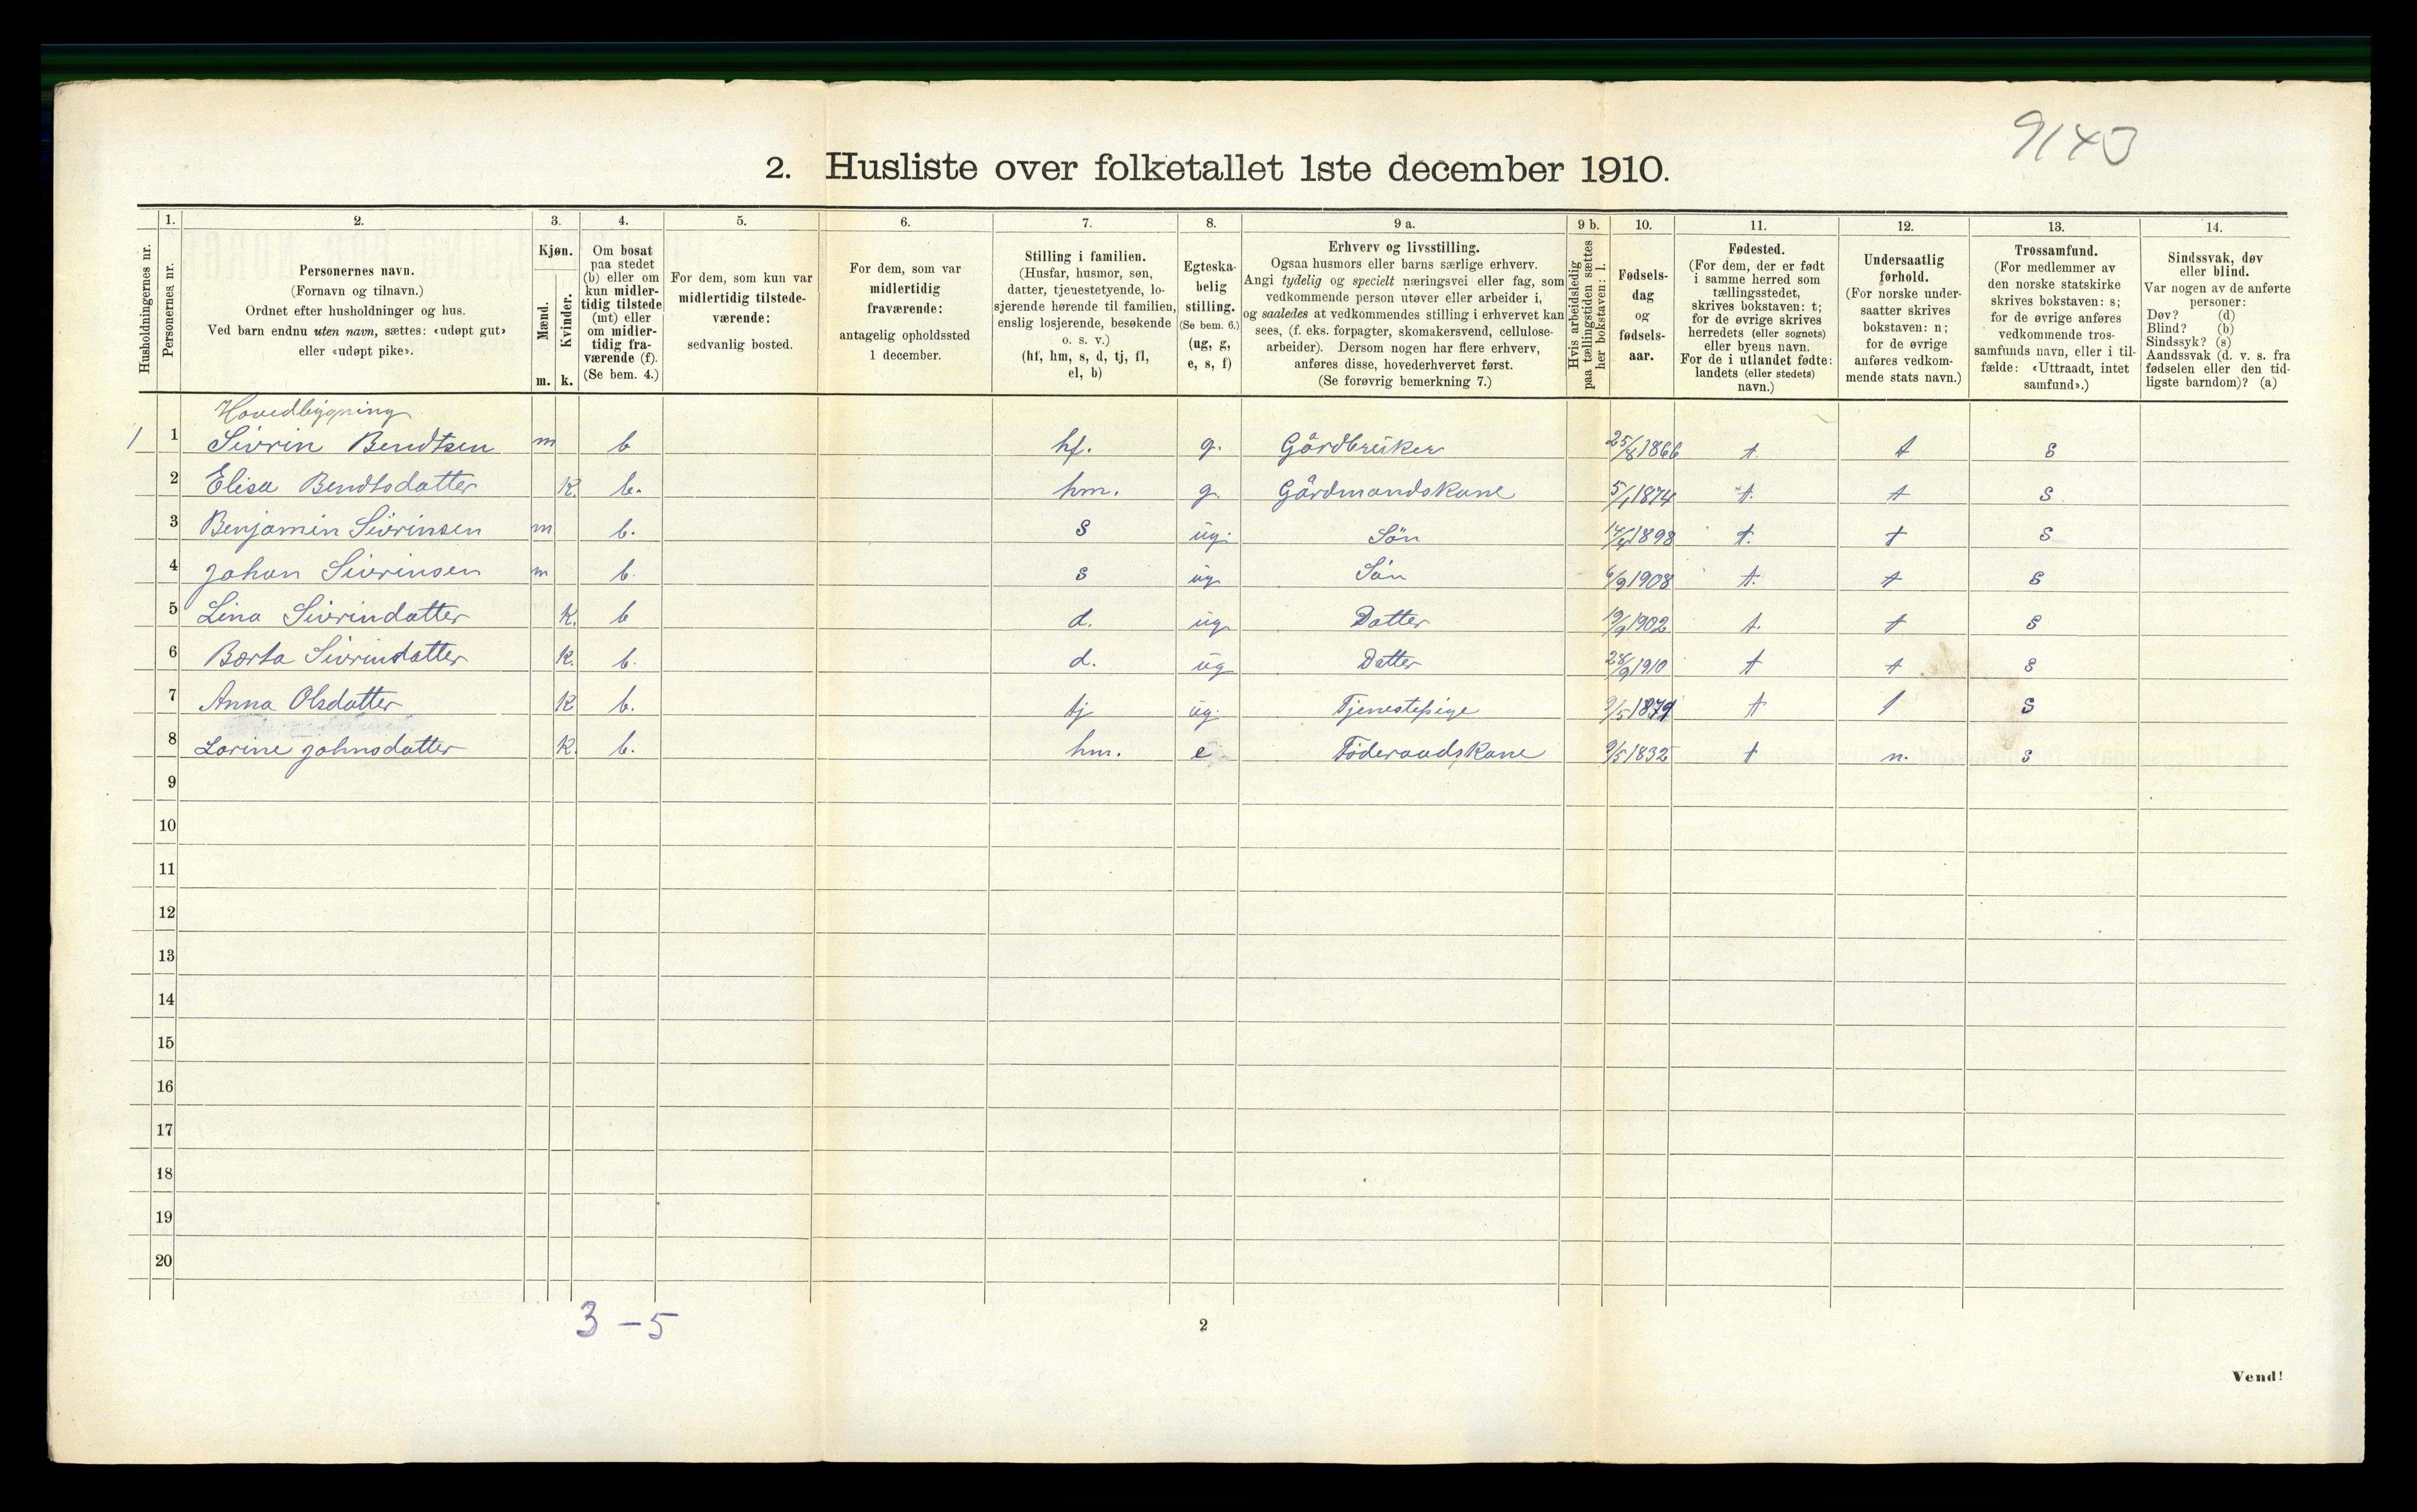 9143
2. Husliste over folketallet 1ste december 1910.
Husholdningernes nr.
1.
Personernes nr.
2.
Personernes navn.
(Fornavn og tilnavn.)
Ordnet efter husholdninger og hus.
Ved barn endnu uten navn, sættes: «udøpt gut»
eller «udøpt pike».
3.
Kjøn.
Mænd.
Kvinder.
m. k.
4.
Om bosat
paa stedet
(b) eller om
kun midler-
tidig tilstede
(mt) eller
om midler-
tidig fra-
værende (f).
(Se bem. 4.)
5.
For dem, som kun var
midlertidig tilstede-
værende:
sedvanlig bosted.
6.
For dem, som var
midlertidig
fraværende:
antagelig opholdssted
1 december.
7.
Stilling i familien.
(Husfar, husmor, søn,
datter, tjenestetyende, lo-
sjerende hørende til familien,
enslig losjerende, besøkende
o. s. v.)
(hf, hm, s, d, tj, fl,
el, b)
8.
Egteska-
belig
stilling.
(Se bem. 6.)
(ug, g,
e, s, f)
9 a.
Erhverv og livsstilling.
Ogsaa husmors eller barns særlige erhverv.
Angi tydelig og specielt næringsvei eller fag, som
vedkommende person utøver eller arbeider i,
og saaledes at vedkommendes stilling i erhvervet kan
sees, (f. eks. forpagter, skomakersvend, cellulose-
arbeider). Dersom nogen har flere erhverv,
anføres disse, hovederhvervet først.
(Se forøvrig bemerkning 7.)
9 b.
Hvis arbeidsledig
paa tællingstiden sættes
her bokstaven: l.
10.
Fødsels-
dag
og
fødsels-
aar.
11.
Fødested.
(For dem, der er født
i samme herred som
tællingsstedet,
skrives bokstaven: t;
for de øvrige skrives
herredets (eller sognets)
eller byens navn.
For de i utlandet fødte:
landets (eller stedets)
navn.)
12.
Undersaatlig
forhold.
(For norske under-
saatter skrives
bokstaven: n;
for de øvrige
anføres vedkom-
mende stats navn.)
13.
Trossamfund.
(For medlemmer av
den norske statskirke
skrives bokstaven: s;
for de øvrige anføres
vedkommende tros-
samfunds navn, eller i til-
fælde: «Uttraadt, intet
samfund».)
14.
Sindssvak, døv
eller blind.
Var nogen av de anførte
personer:
Døv? (d)
Blind? (b)
Sindssyk? (s)
Aandssvak (d. v. s. fra
fødselen eller den tid-
ligste barndom)? (a)
Hovedbygning
1 1 Sivrin Bendtsen m b hf. g. Gårdbruker 25/8 1866 t t s
2 Elisa Bendtsdatter K. b. hm. g. Gårdmandskone 5/1 1874 t. t s
3 Benjamin Sivrinsen m b. s ug. Sön 14/4 1898 t. t s
4 Johan Sivrinsen m b. s ug Sön 6/9 1908 t. t s
5 Lina Sivrindatter K. b d. ug Datter 19/9 1902 t. t s
6 Berta Sivrindatter K. b. d. ug Datter 28/9 1910 t t s
7 Anna Olsdatter K b. tj ug. Tjenestepige 9/5 1879 t t s
8 Lorine Johnsdatter K. b. hm. e Föderaadskone 9/5 1832 t n. s
9
10
11
12
13
14
15
16
17
18
19
20
3 - 5
2
Vend!